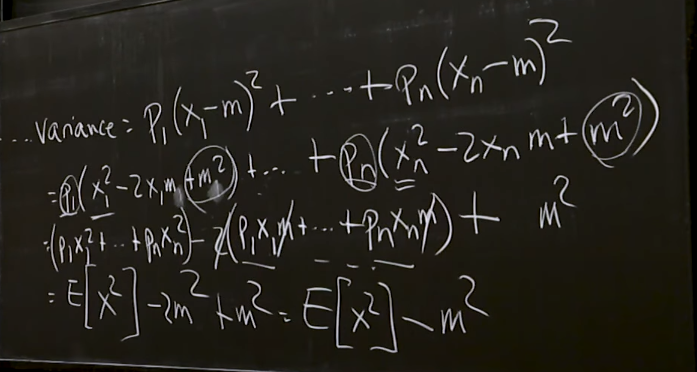 ... Variance = p₁(x₁-m)² + ... + pₙ(xₙ-m)²
= p₁(x₁² - 2x₁m + m²) + ... + pₙ(xₙ² - 2xₙm + m²)
= (p₁x₁² + ... + pₙxₙ²) - 2(p₁x₁m + ... + pₙxₙm) + m²
= E[x²] - 2m² + m² = E[x²] - m²